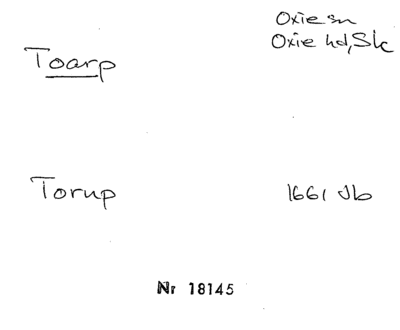 Oxie sn
Toarp Oxie hd, Sk
Torup 1661 Jb
Nr 18145